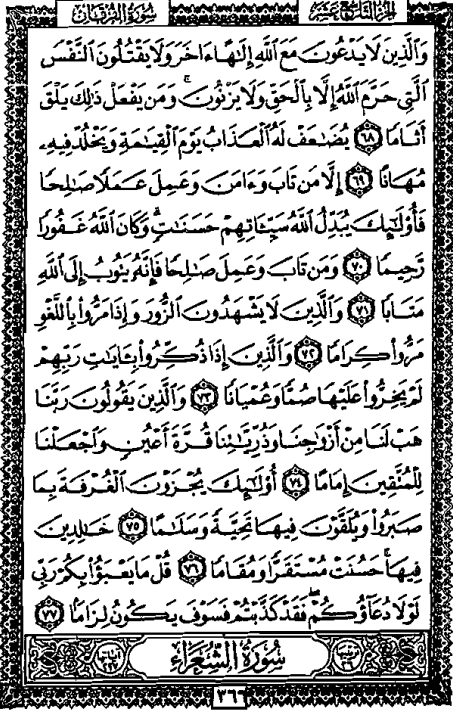 الجزء التاسع عشر سورة الفرقان
وَٱلَّذِينَ لَا يَدۡعُونَ مَعَ ٱللَّهِ إِلَٰهًا ءَاخَرَ وَلَا يَقۡتُلُونَ ٱلنَّفۡسَ
ٱلَّتِي حَرَّمَ ٱللَّهُ إِلَّا بِٱلۡحَقِّ وَلَا يَزۡنُونَۚ وَمَن يَفۡعَلۡ ذَٰلِكَ يَلۡقَ
أَثَامٗا ٦٨ يُضَٰعَفۡ لَهُ ٱلۡعَذَابُ يَوۡمَ ٱلۡقِيَٰمَةِ وَيَخۡلُدۡ فِيهِۦ
مُهَانًا ٦٩ إِلَّا مَن تَابَ وَءَامَنَ وَعَمِلَ عَمَلٗا صَٰلِحٗا
فَأُوْلَٰٓئِكَ يُبَدِّلُ ٱللَّهُ سَيِّـَٔاتِهِمۡ حَسَنَٰتٖۗ وَكَانَ ٱللَّهُ غَفُورٗا
رَّحِيمٗا ٧٠ وَمَن تَابَ وَعَمِلَ صَٰلِحٗا فَإِنَّهُۥ يَتُوبُ إِلَى ٱللَّهِ
مَتَابٗا ٧١ وَٱلَّذِينَ لَا يَشۡهَدُونَ ٱلزُّورَ وَإِذَا مَرُّواْ بِٱللَّغۡوِ
مَرُّواْ كِرَامٗا ٧٢ وَٱلَّذِينَ إِذَا ذُكِّرُواْ بِـَٔايَٰتِ رَبِّهِمۡ
لَمۡ يَخِرُّواْ عَلَيۡهَا صُمّٗا وَعُمۡيَانٗا ٧٣ وَٱلَّذِينَ يَقُولُونَ رَبَّنَا
هَبۡ لَنَا مِنۡ أَزۡوَٰجِنَا وَذُرِّيَّٰتِنَا قُرَّةَ أَعۡيُنٖ وَٱجۡعَلۡنَا
لِلۡمُتَّقِينَ إِمَامًا ٧٤ أُوْلَٰٓئِكَ يُجۡزَوۡنَ ٱلۡغُرۡفَةَ بِمَا
صَبَرُواْ وَيُلَقَّوۡنَ فِيهَا تَحِيَّةٗ وَسَلَٰمًا ٧٥ خَٰلِدِينَ
فِيهَاۚ حَسُنَتۡ مُسۡتَقَرّٗا وَمُقَامٗا ٧٦ قُلۡ مَا يَعۡبَؤُاْ بِكُمۡ رَبِّي
لَوۡلَا دُعَآؤُكُمۡۖ فَقَدۡ كَذَّبۡتُمۡ فَسَوۡفَ يَكُونُ لِزَامَۢا ٧٧
سُورَةُ الشُّعَرَاءِ
٣٦٦